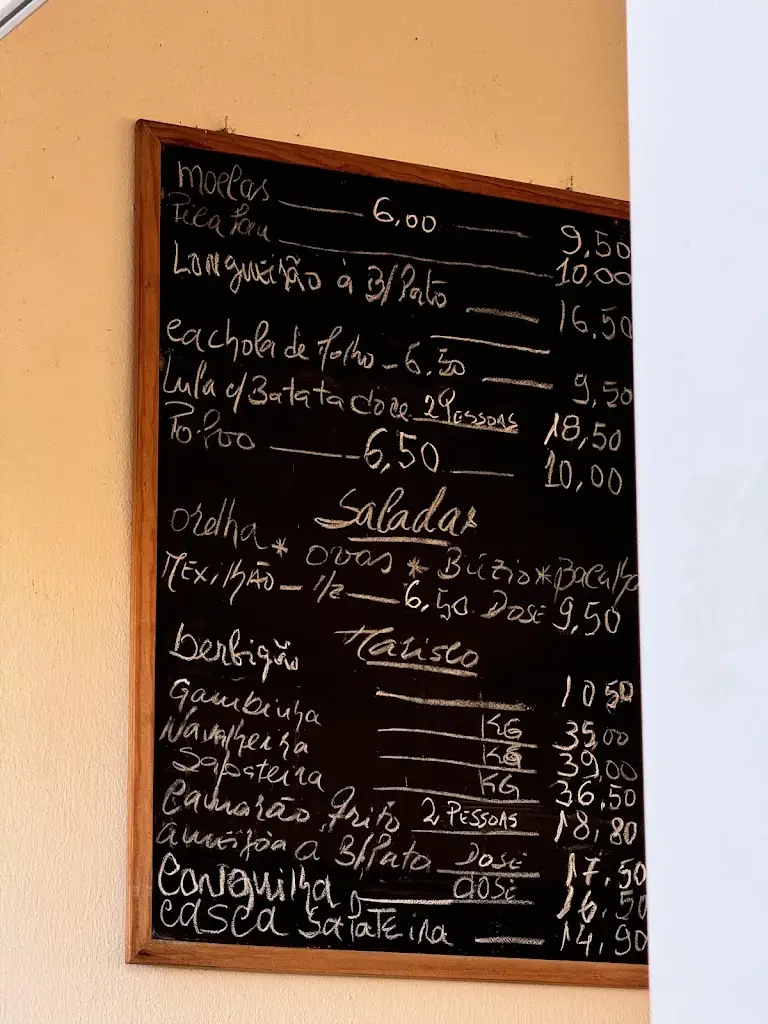 moelas 6,00 9,50
Pica Pau 10,00
LONGUEIRÃO à B/Pato 16,50
cachola de molho - 6,50 9,50
Lula c/ Batata doce 2 PESSOAS 18,50
Polvo 6,50 10,00
Saladas
orelha * ovas * Búzio * Bacalha
MEXILHÃO - 1/2 - 6,50 DOSE 9,50
Marisco
berbigão 10 50
Gambinha KG 35,00
Navalheira KG 39,00
Sapateira KG 36,50
Camarão frito 2 PESSOAS 18,80
ameijoa a B/Pato DOSE 17,50
Conquilha DOSE 16,50
CASCA SAPATEira 14,90